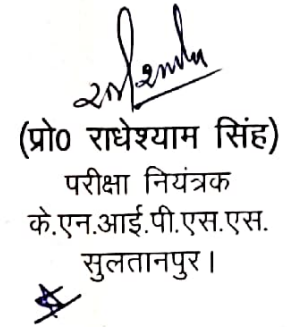 (प्रो0 राधेश्याम सिंह)
परीक्षा नियंत्रक
के.एन.आई.पी.एस.एस.
सुलतानपुर।